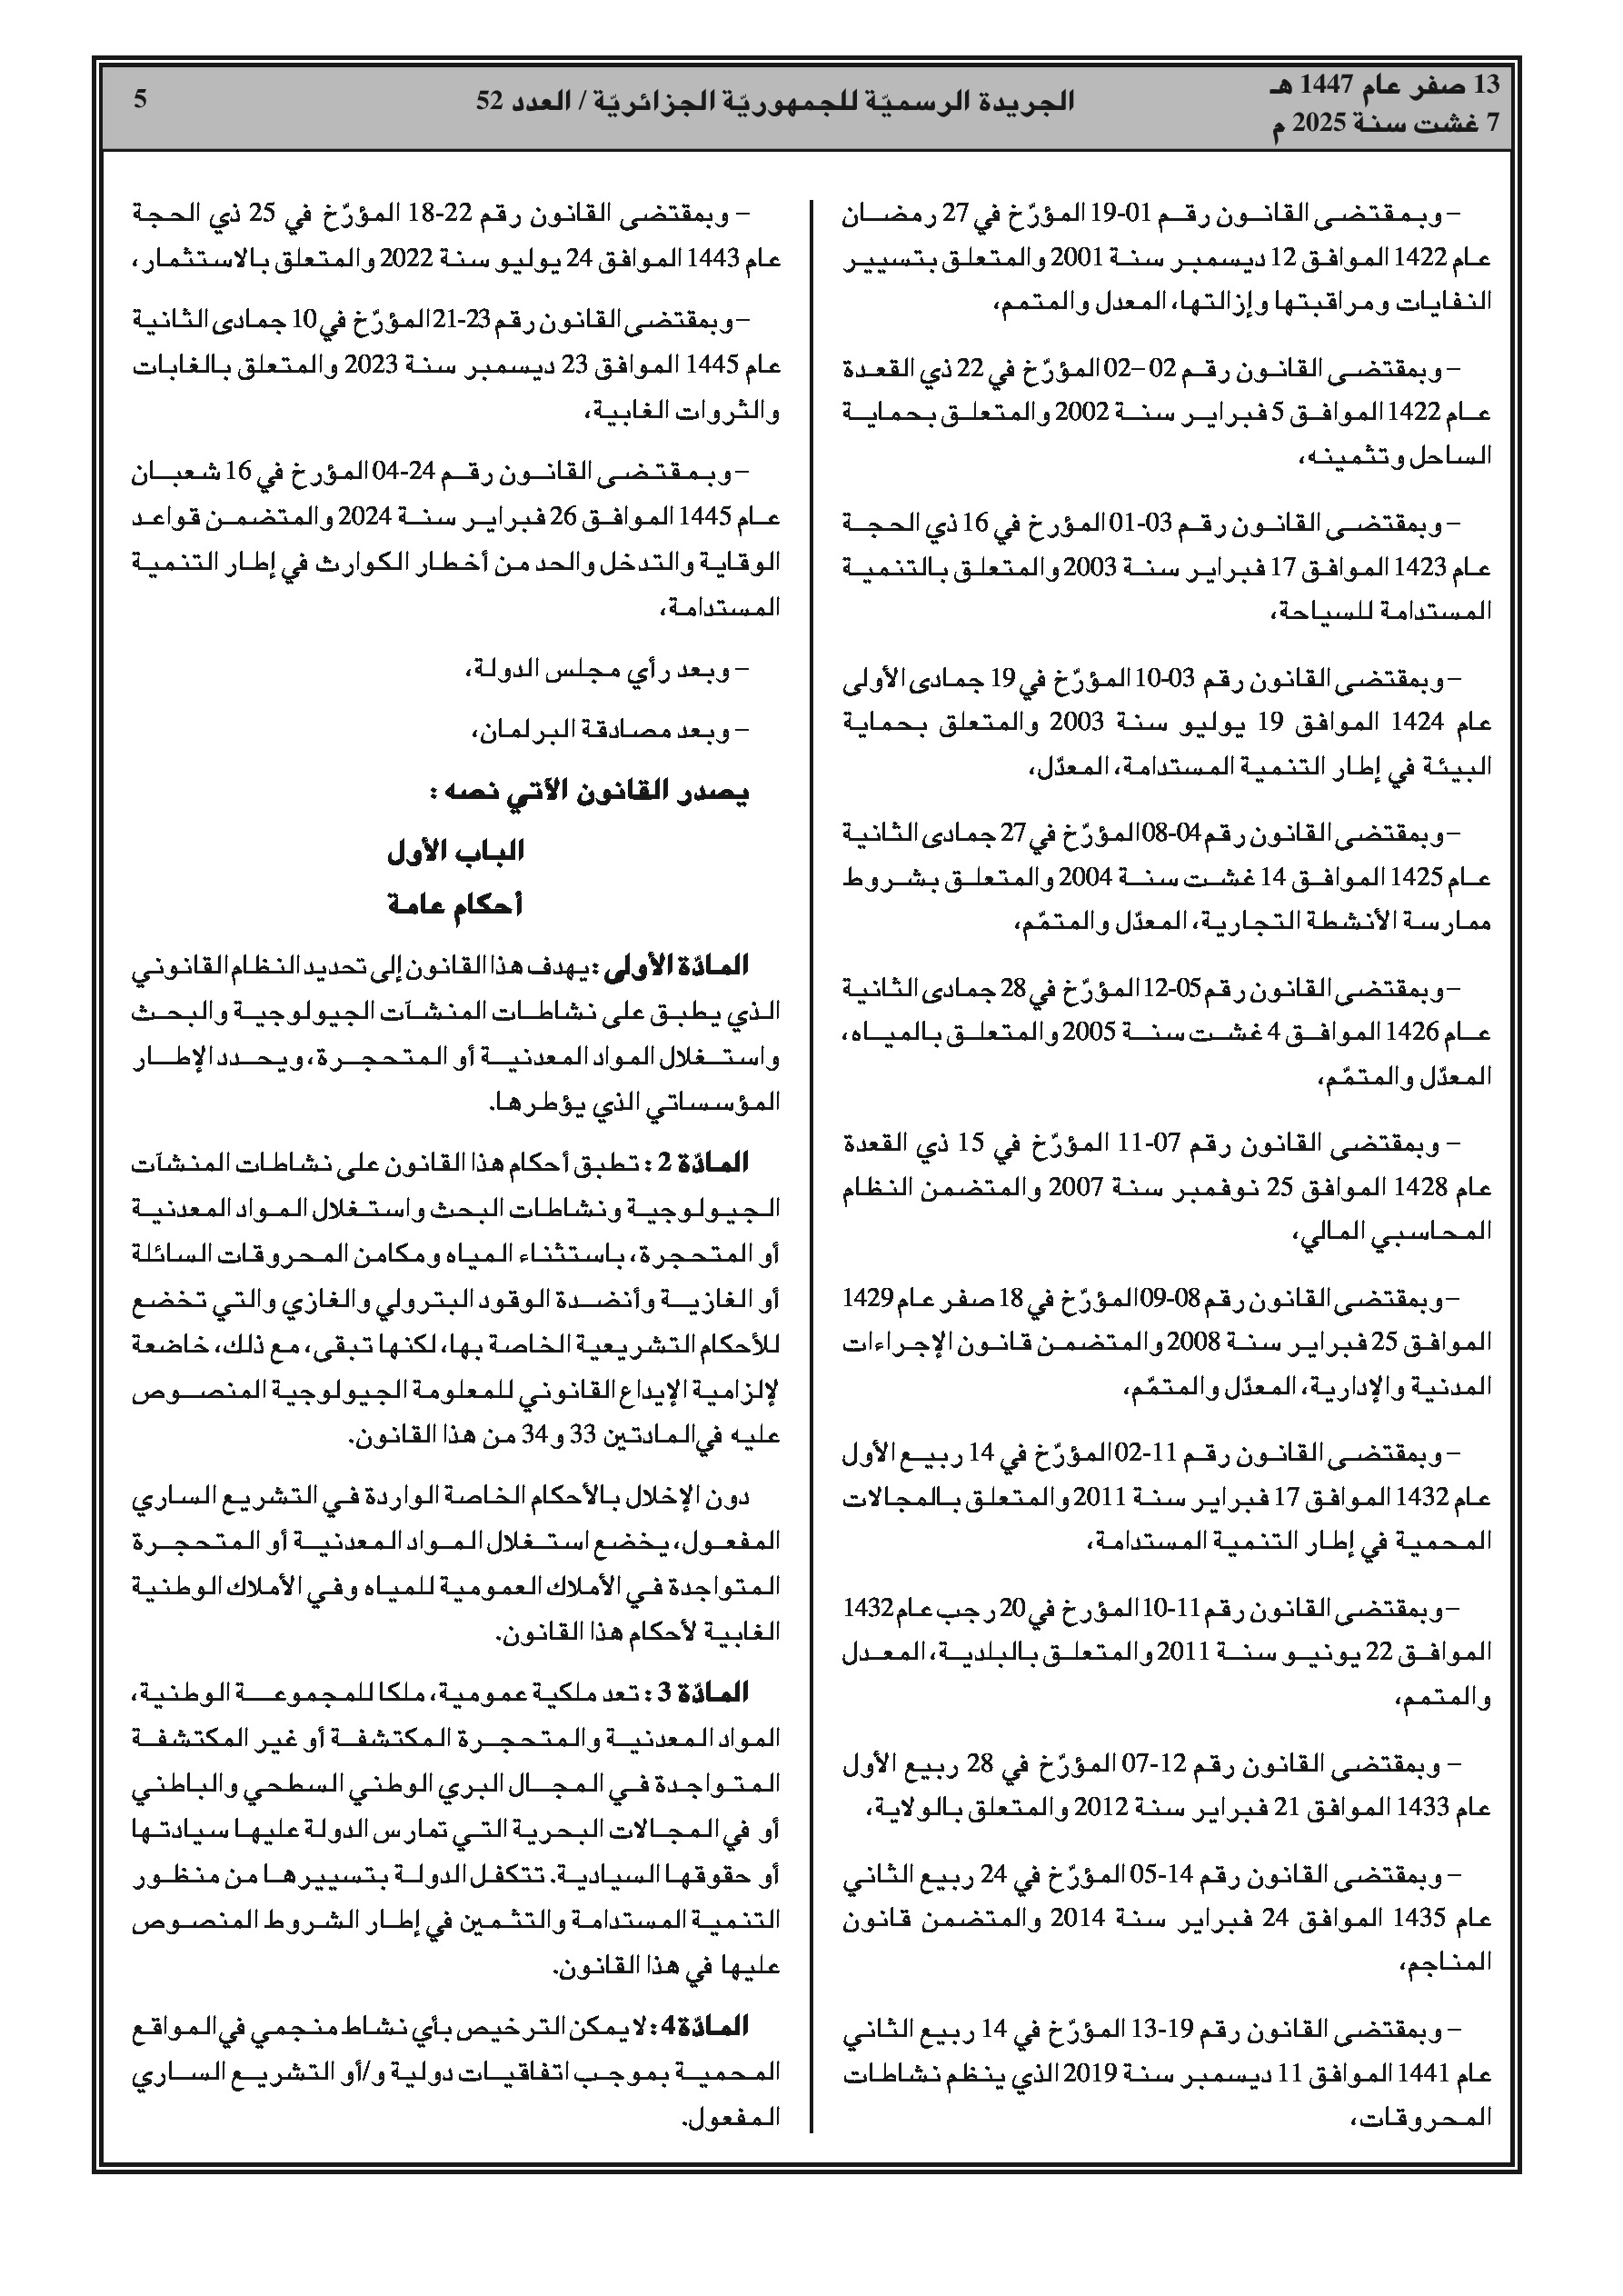 13 صفر عام 1447 هـ
7 غشت سنة 2025 م
الجريدة الرسميّة للجمهوريّة الجزائريّة / العدد 52
5
– وبمقتضى القانون رقم 01-19 المؤرّخ في 27 رمضان
عام 1422 الموافق 12 ديسمبر سنة 2001 والمتعلق بتسيير
النفايات ومراقبتها وإزالتها، المعدل والمتمم،
– وبمقتضى القانون رقم 02 –02 المؤرّخ في 22 ذي القعدة
عام 1422 الموافق 5 فبراير سنة 2002 والمتعلق بحماية
الساحل وتثمينه،
– وبمقتضى القانون رقم 03-01 المؤرخ في 16 ذي الحجة
عام 1423 الموافق 17 فبراير سنة 2003 والمتعلق بالتنمية
المستدامة للسياحة،
– وبمقتضى القانون رقم 03-10 المؤرّخ في 19 جمادى الأولى
عام 1424 الموافق 19 يوليو سنة 2003 والمتعلق بحماية
البيئة في إطار التنمية المستدامة، المعدّل،
– وبمقتضى القانون رقم 04-08 المؤرّخ في 27 جمادى الثانية
عام 1425 الموافق 14 غشت سنة 2004 والمتعلق بشروط
ممارسة الأنشطة التجارية، المعدّل والمتمّم،
– وبمقتضى القانون رقم 05-12 المؤرّخ في 28 جمادى الثانية
عام 1426 الموافق 4 غشت سنة 2005 والمتعلق بالمياه،
المعدّل والمتمّم،
– وبمقتضى القانون رقم 07-11 المؤرّخ في 15 ذي القعدة
عام 1428 الموافق 25 نوفمبر سنة 2007 والمتضمن النظام
المحاسبي المالي،
– وبمقتضى القانون رقم 08-09 المؤرّخ في 18 صفر عام 1429
الموافق 25 فبراير سنة 2008 والمتضمن قانون الإجراءات
المدنية والإدارية، المعدّل والمتمّم،
– وبمقتضى القانون رقم 11-02 المؤرّخ في 14 ربيع الأول
عام 1432 الموافق 17 فبراير سنة 2011 والمتعلق بالمجالات
المحمية في إطار التنمية المستدامة،
– وبمقتضى القانون رقم 11-10 المؤرخ في 20 رجب عام 1432
الموافق 22 يونيو سنة 2011 والمتعلق بالبلدية، المعدل
والمتمم،
– وبمقتضى القانون رقم 12-07 المؤرّخ في 28 ربيع الأول
عام 1433 الموافق 21 فبراير سنة 2012 والمتعلق بالولاية،
– وبمقتضى القانون رقم 14-05 المؤرّخ في 24 ربيع الثاني
عام 1435 الموافق 24 فبراير سنة 2014 والمتضمن قانون
المناجم،
– وبمقتضى القانون رقم 19-13 المؤرّخ في 14 ربيع الثاني
عام 1441 الموافق 11 ديسمبر سنة 2019 الذي ينظم نشاطات
المحروقات،
– وبمقتضى القانون رقم 22-18 المؤرّخ في 25 ذي الحجة
عام 1443 الموافق 24 يوليو سنة 2022 والمتعلق بالاستثمار،
– وبمقتضى القانون رقم 23-21 المؤرّخ في 10 جمادى الثانية
عام 1445 الموافق 23 ديسمبر سنة 2023 والمتعلق بالغابات
والثروات الغابية،
– وبمقتضى القانون رقم 24-04 المؤرخ في 16 شعبان
عام 1445 الموافق 26 فبراير سنة 2024 والمتضمن قواعد
الوقاية والتدخل والحد من أخطار الكوارث في إطار التنمية
المستدامة،
– وبعد رأي مجلس الدولة،
– وبعد مصادقة البرلمان،
يصدر القانون الآتي نصه :
الباب الأول
أحكام عامة
المادّة الأولى : يهدف هذا القانون إلى تحديد النظام القانوني
الذي يطبق على نشاطات المنشآت الجيولوجية والبحث
واستغلال المواد المعدنية أو المتحجرة، ويحدد الإطار
المؤسساتي الذي يؤطرها.
المادّة 2 : تطبق أحكام هذا القانون على نشاطات المنشآت
الجيولوجية ونشاطات البحث واستغلال المواد المعدنية
أو المتحجرة، باستثناء المياه ومكامن المحروقات السائلة
أو الغازية وأنضدة الوقود البترولي والغازي والتي تخضع
للأحكام التشريعية الخاصة بها، لكنها تبقى، مع ذلك، خاضعة
لإلزامية الإيداع القانوني للمعلومة الجيولوجية المنصوص
عليه في المادتين 33 و34 من هذا القانون.
دون الإخلال بالأحكام الخاصة الواردة في التشريع الساري
المفعول، يخضع استغلال المواد المعدنية أو المتحجرة
المتواجدة في الأملاك العمومية للمياه وفي الأملاك الوطنية
الغابية لأحكام هذا القانون.
المادّة 3 : تعد ملكية عمومية، ملكا للمجموعة الوطنية،
المواد المعدنية والمتحجرة المكتشفة أو غير المكتشفة
المتواجدة في المجال البري الوطني السطحي والباطني
أو في المجالات البحرية التي تمارس الدولة عليها سيادتها
أو حقوقها السيادية. تتكفل الدولة بتسييرها من منظور
التنمية المستدامة والتثمين في إطار الشروط المنصوص
عليها في هذا القانون.
المادّة 4 : لا يمكن الترخيص بأي نشاط منجمي في المواقع
المحمية بموجب اتفاقيات دولية و/أو التشريع الساري
المفعول.